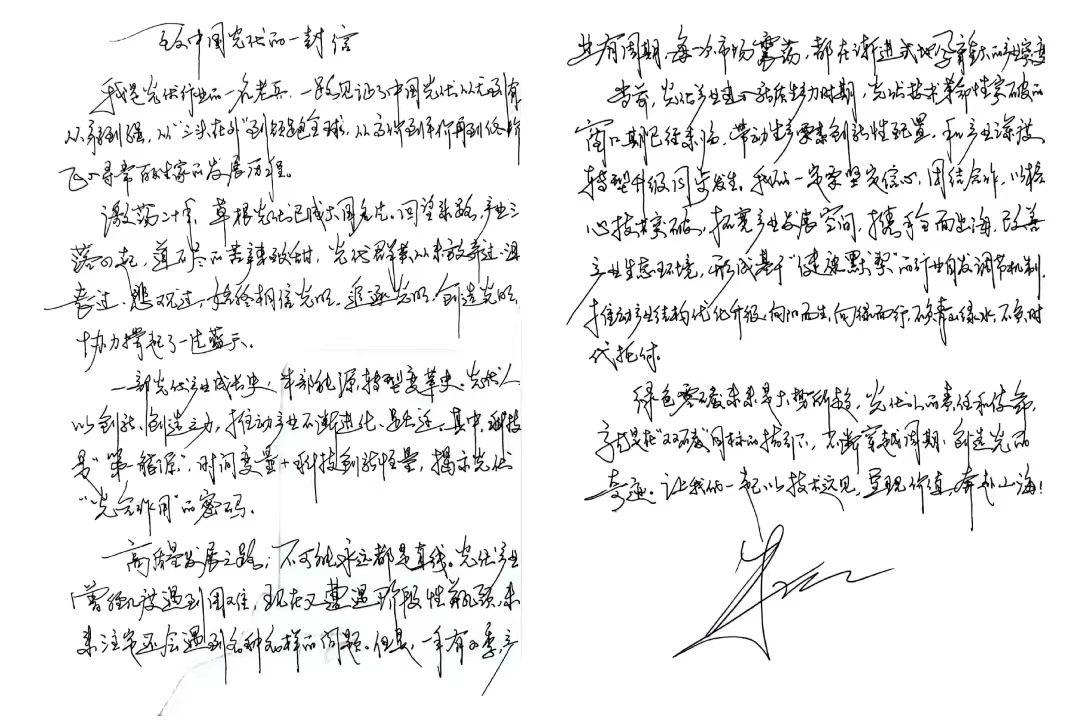 致中国光伏的一封信
我是光伏行业的一名老兵,一路见证了中国光伏从无到有
从弱到强,从“三头在外”到领跑全球,从高价到低价再到低价
飞入寻常百姓家的发展历程。
激荡二十年,草根光伏已成大国光伏,回望来路,产业三
落四起,道不尽的苦辣酸甜,光伏群英从未放弃过、沮
丧过、悲观过,始终相信光明、追逐光明、创造光明,
协力撑起了一片蓝天。
一部光伏产业成长史,半部能源转型变革史。光伏人
以创新、创造之力,推动产业不断进化、跃迁,其中,科技
是“第一能源”,时间变量+科技创新性量,揭示光伏
“光合作用”的密码。
高质量发展之路,不可能永远都是直线。光伏产业
曾经几度遇到困难,现在又遭遇阶段性瓶颈,未
来注定还会遇到各种各样的问题。但是,一年有四季,产
业有周期,每一次市场震荡,都在渐进式地孕育新的产业突变
当前,光伏产业进入新质生产力时期,光伏技术革命性突破的
窗口期已经来临,带动生产要素创新性配置,和产业深度
转型升级同步发生。我们一定要坚定信心,团结合作,以核
心技术突破,拓宽产业发展空间,携手全面出海,改善
产业生态环境,形成基于“健康默契”的行业自发调节机制,
推动产业结构优化升级,向阳而生,向绿而行,不负青山绿水,不负时
代托付。
绿色零碳未来是大势所趋,光伏人的责任和使命,
就是在“双碳”目标的指引下,不断穿越周期,创造光的
奇迹。让我们一起以技术远见,呈现价值,奔赴山海!